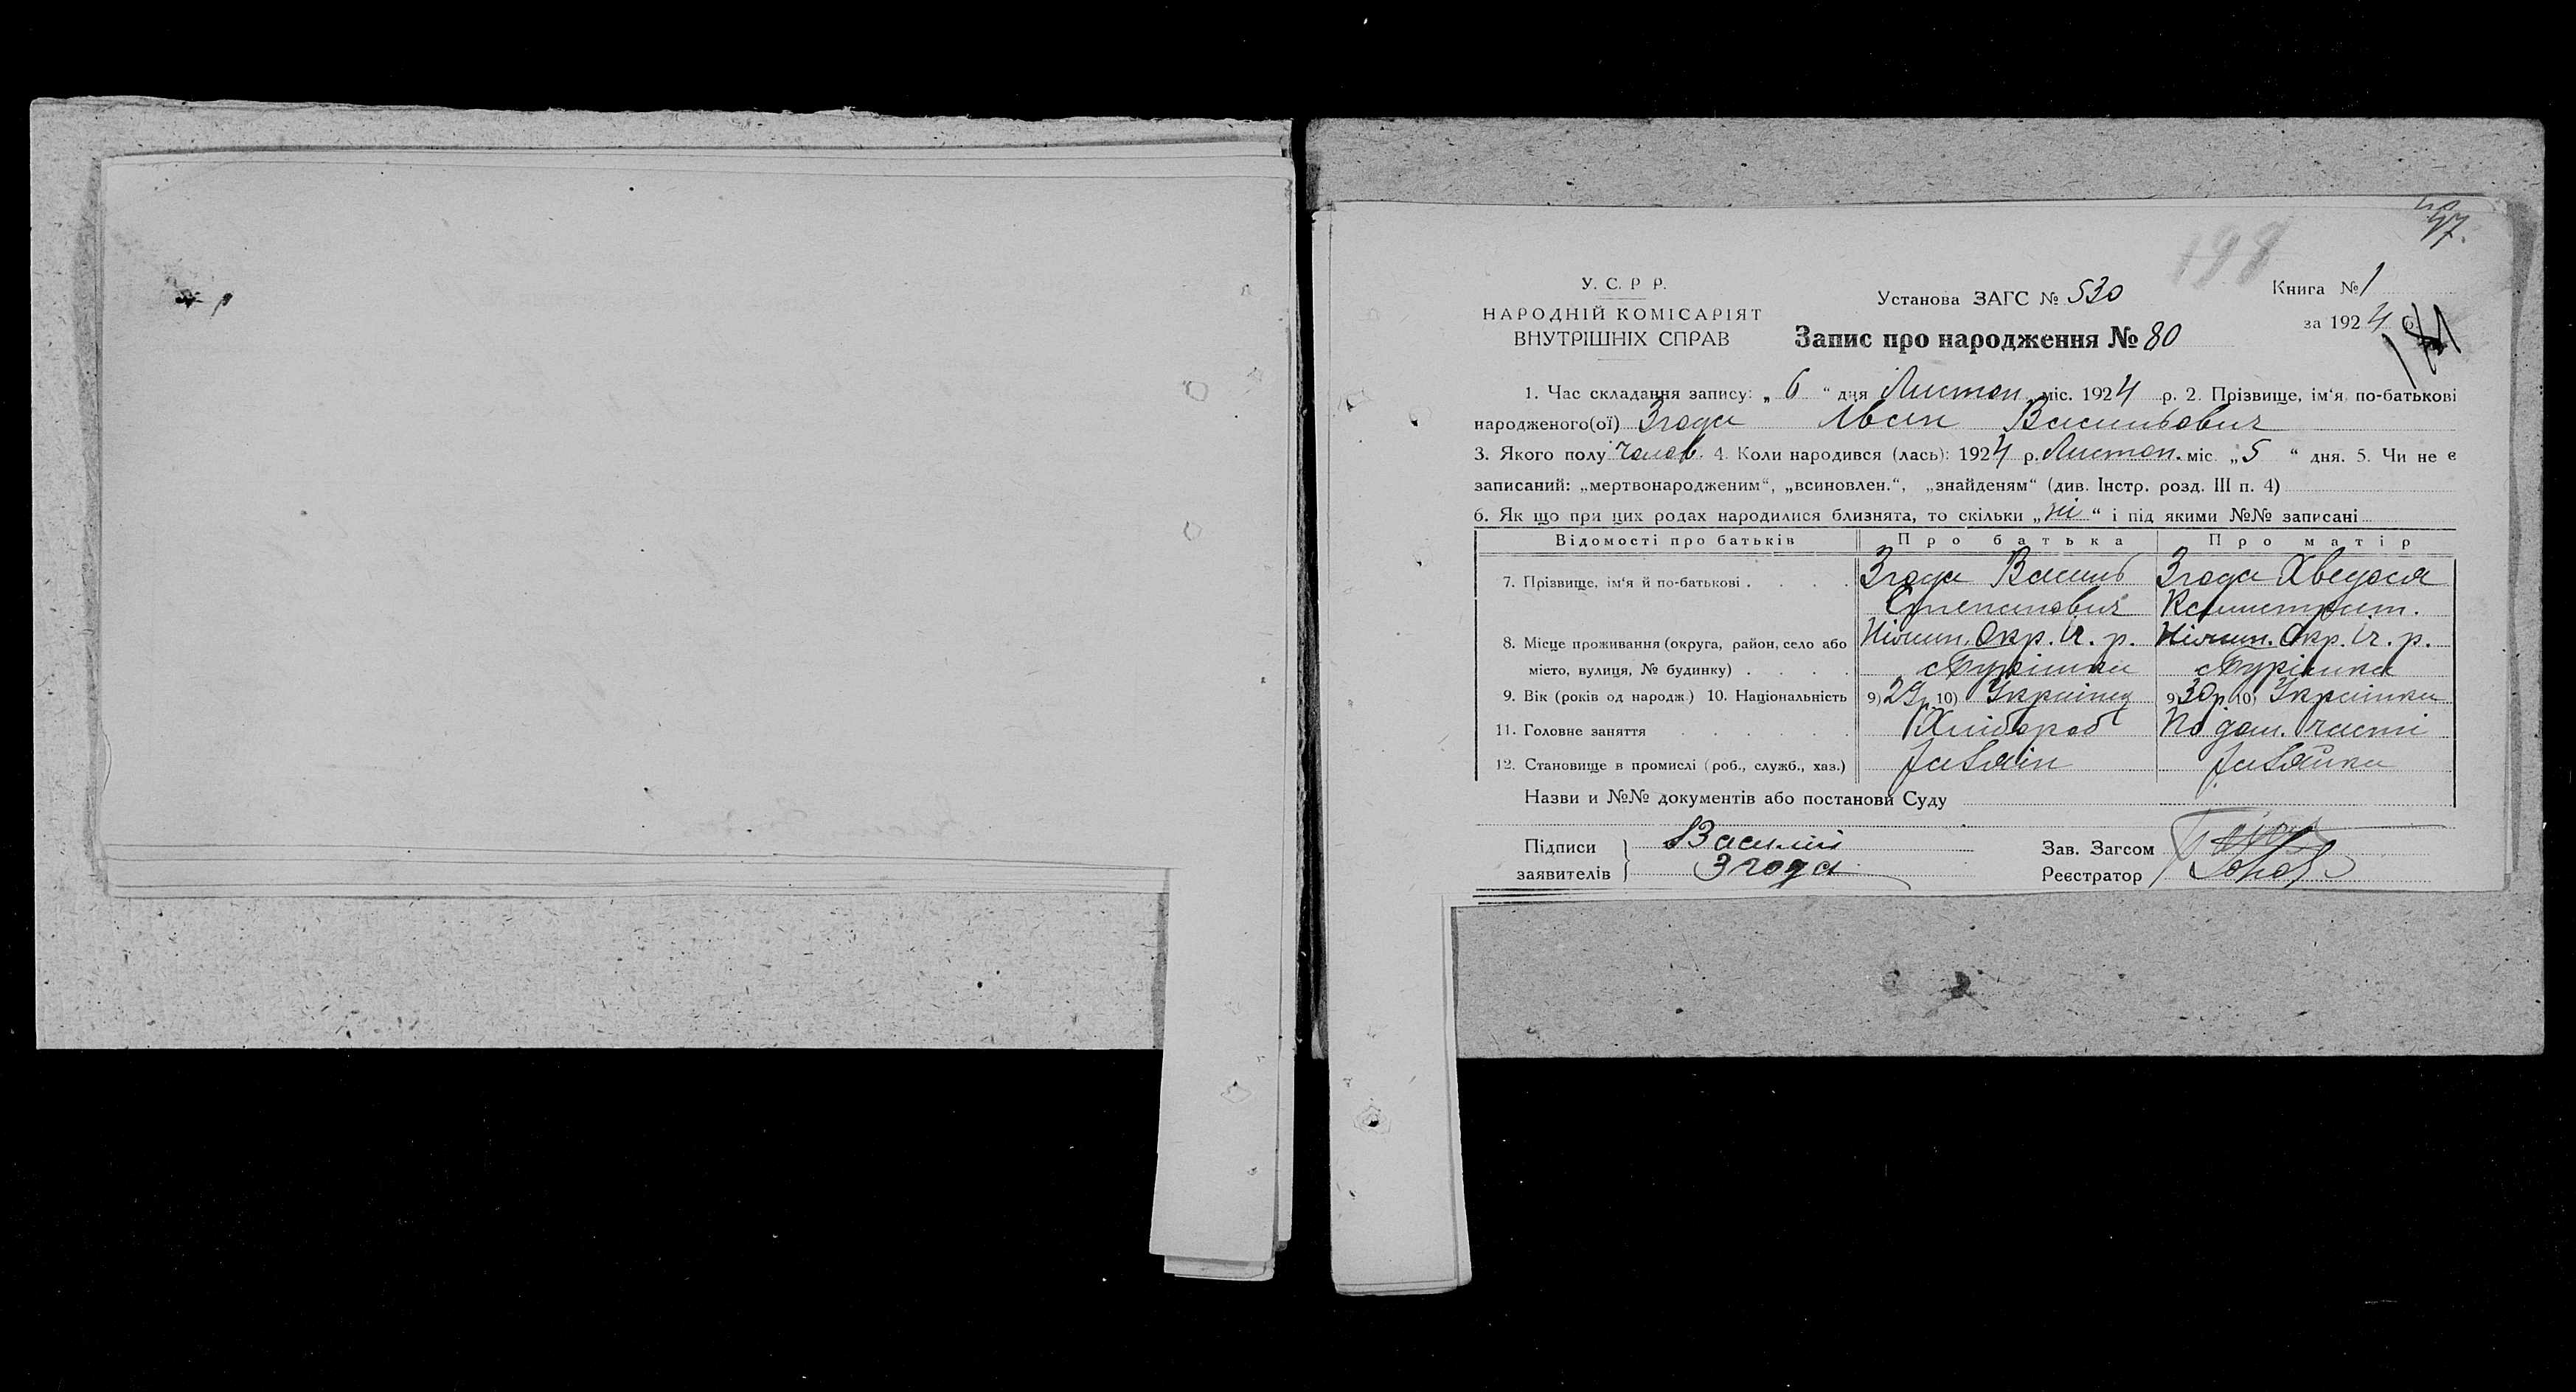 47.
198
У. С. Р Р.
НАРОДНІЙ КОМІСАРІЯТ
ВНУТРІШНІХ СПРАВ
Установа ЗАГС № 530
Запис про народження № 80
Книга № 1
за 1924 р.
1. Час складання запису: „ 6 “ дня Листоп. міс. 1924 р. 2. Прізвище, ім‘я, по-батькові
народженого(ої) Згода Іван Васильович
3. Якого полу чолов. 4. Коли народився (лась): 1924 р. Листоп. міс. „5 “ дня. 5. Чи не є
записаний: „мертвонародженим“, „всиновлен.“, „знайденям“ (див. Інстр. розд. III п. 4)
6. Як що при цих родах народилися близнята, то скільки „ні“ і під якими №№ записані
Відомості про батьків Про батька Про матір
7. Прізвище, ім‘я й по-батькові . . . . Згода Василь Згода Хведося
Степанович
8. Місце проживання (округа, район, село або Ніжин. Окр. Іч. р. Ніжин. Окр. Іч. р.
місто, вулиця, № будинку) . . . .
9. Вік (років од народж.) 10. Національність 9) 29 р. 10) Українец 9) 30 р. 10) Українка
11. Головне заняття . . . . . . Хлібороб По дом. части
12. Становище в промислі (роб., служб., хаз.) Хазяїн Хазяйка
Назви и №№ документів або постанови Суду
Підписи Василий Зав. Загсом
заявителів Згода Реєстратор